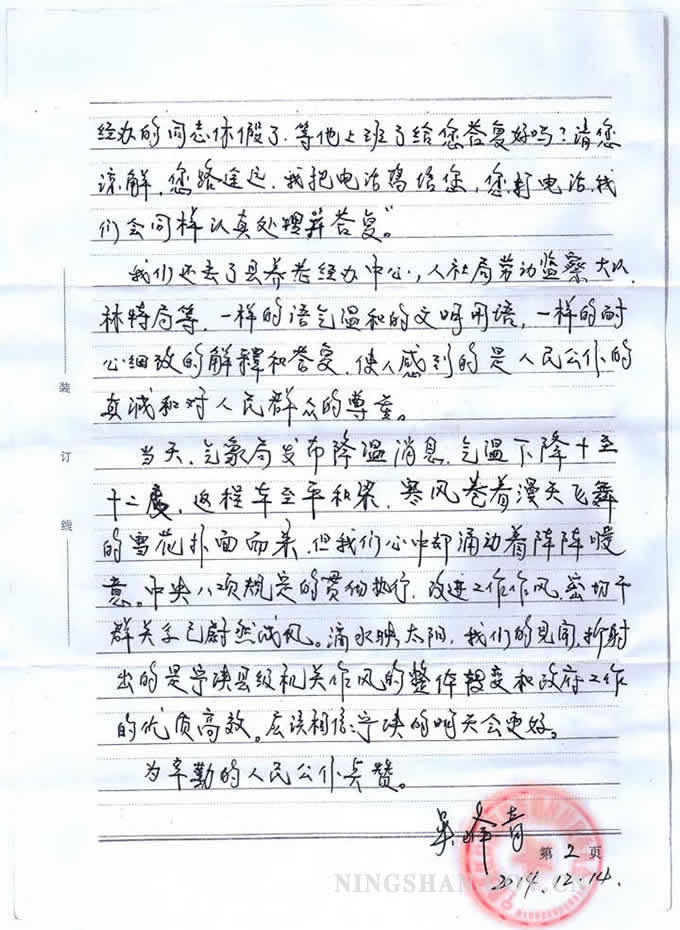 经办的同志休假了，等他上班了给您答复好吗？请您
谅解，您路途远，我把电话写给您，您打电话，我
们会同样认真处理并答复”。
我们还去了县养老经办中心，人社局劳动监察大队，
林特局等，一样的语气温和的文明用语，一样的耐
心细致的解释和答复，使人感到的是人民公仆的
真诚和对人民群众的尊重。
当天，气象局发布降温消息，气温下降十至
十二度，返程车至平和梁，寒风卷着漫天飞舞
的雪花扑面而来，但我们心中却涌动着阵阵暖
意。中央八项规定的贯彻执行，改进工作作风，密切干
群关系已蔚然成风。滴水映太阳，我们的见闻，折射
出的是宁陕县级机关作风的整体转变和政府工作
的优质高效。应该相信：宁陕的明天会更好。
为辛勤的人民公仆点赞。
装
订
线
第2页
2014.12.14.